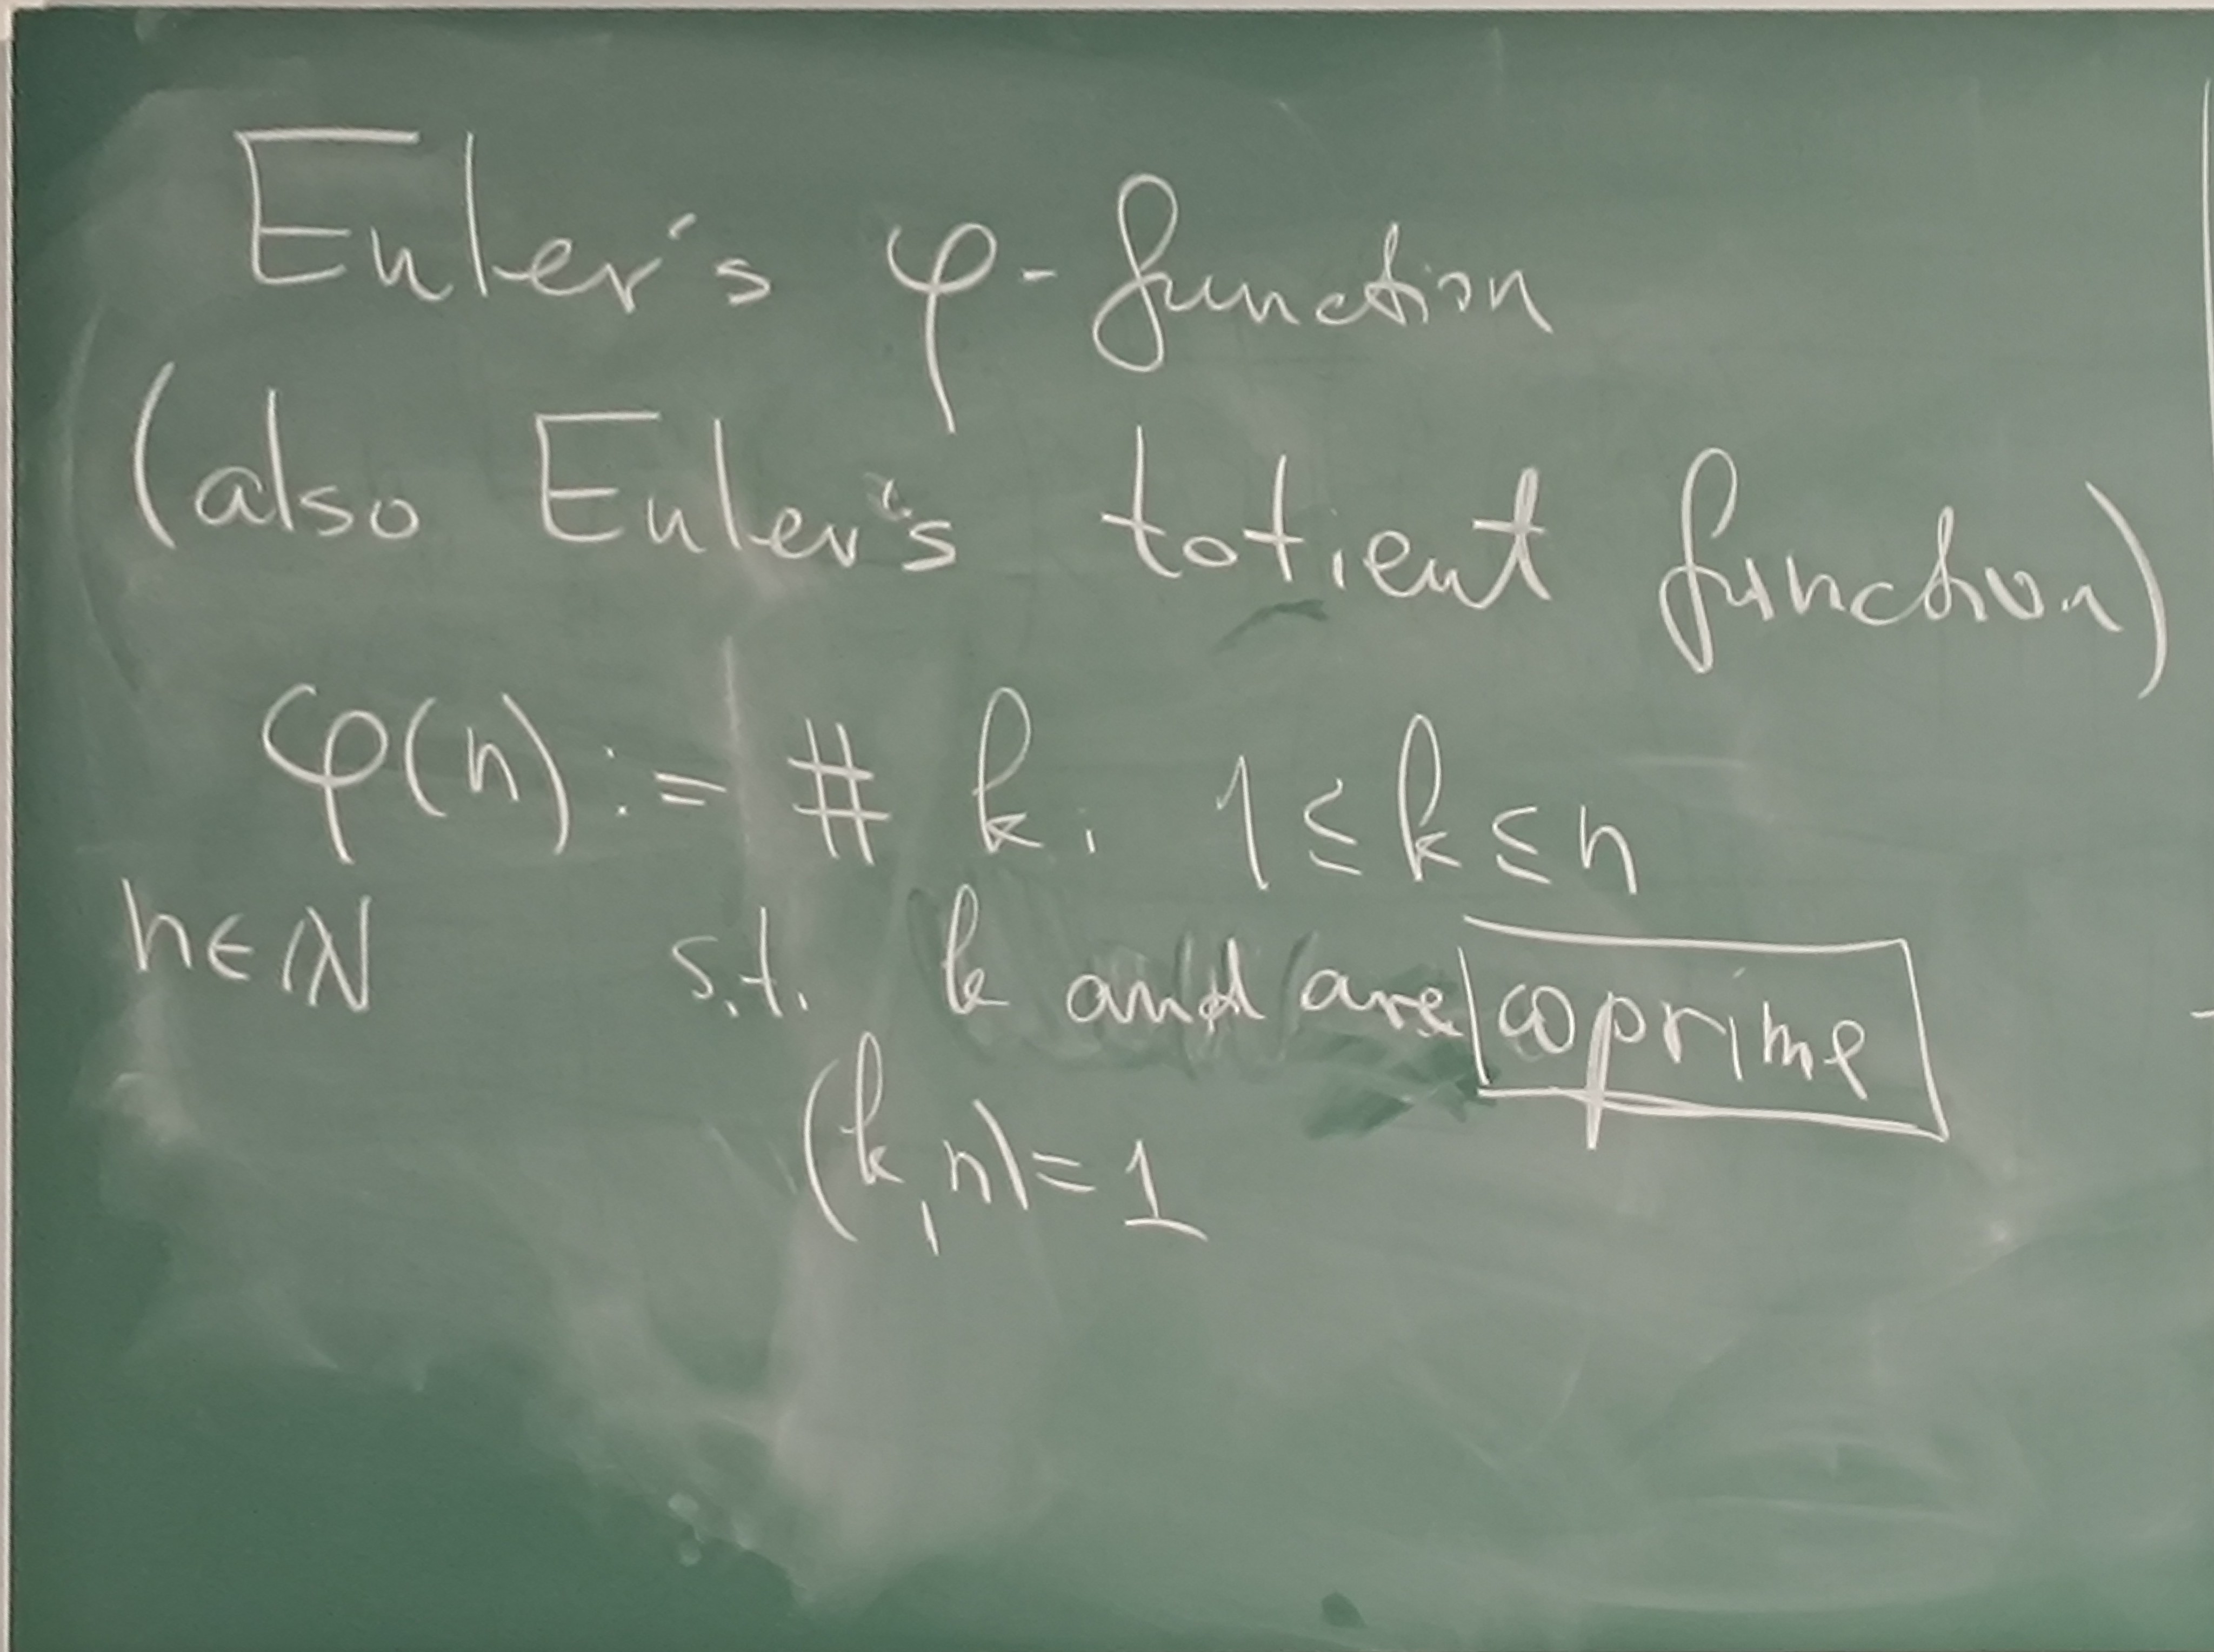 Euler's φ-function
(also Euler's totient function)
φ(n) := # k, 1 ≤ k ≤ n
n ∈ ℕ s.t. k and are coprime
(k, n) = 1